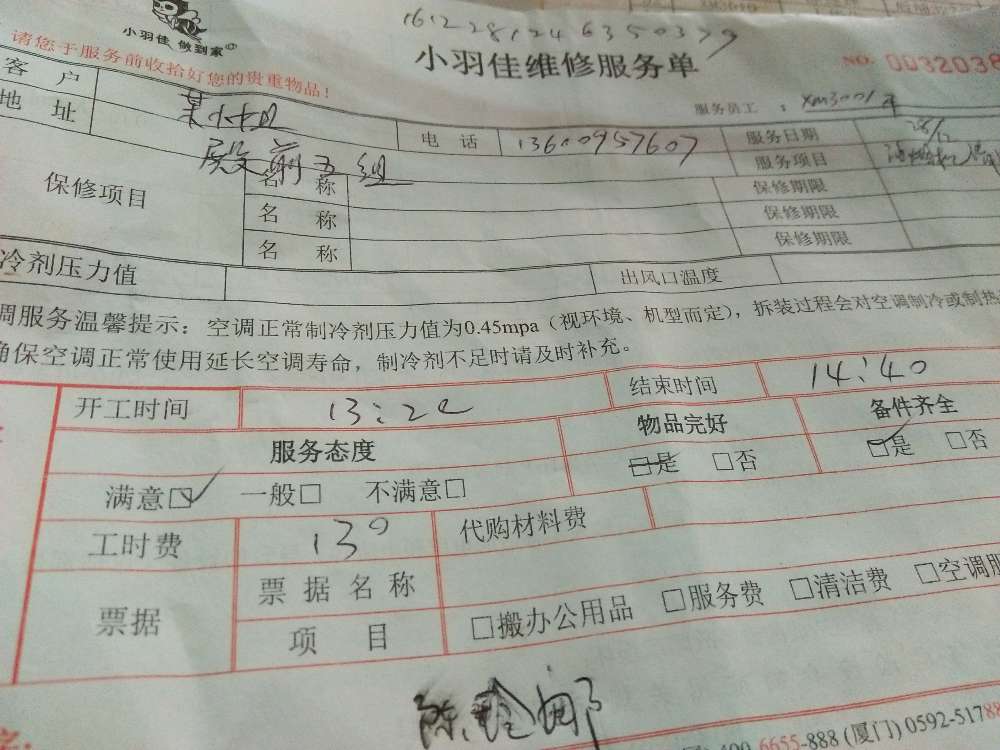 小羽佳 做到家
16122812463503 79
小羽佳维修服务单
NO. 0032038
请您于服务前收拾好您的贵重物品!
服务员工 : xm3001
客 户
电 话 13600957607
服务日期 28/12
地 址 殿前五组
服务项目
保修项目
名 称 保修期限
名 称 保修期限
名 称 保修期限
冷剂压力值 出风口温度
调服务温馨提示:空调正常制冷剂压力值为0.45mpa(视环境、机型而定),拆装过程会对空调制冷或制热
确保空调正常使用延长空调寿命,制冷剂不足时请及时补充。
开工时间 13:20 结束时间 14:40
服务态度 物品完好 备件齐全
满意☑ 一般□ 不满意□ □是 □否 ☑是 □否
工时费 130 代购材料费
票据 票据名称
项 目 □搬办公用品 □服务费 □清洁费 □空调服
6655-888 (厦门) 0592-5178